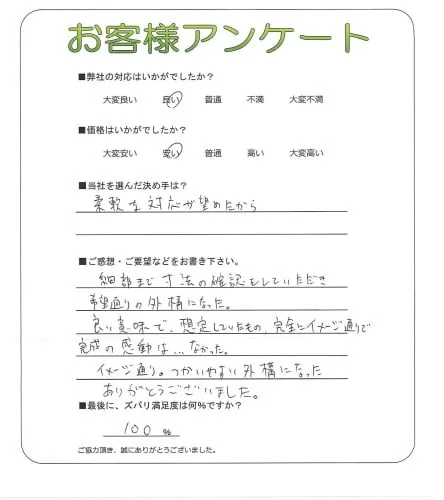 お客様アンケート
■弊社の対応はいかがでしたか?
大変良い 良い 普通 不満 大変不満
■価格はいかがでしたか?
大変安い 安い 普通 高い 大変高い
■当社を選んだ決め手は?
柔軟な対応が望めたから
■ご感想・ご要望などをお書き下さい。
細部まで寸法の確認をしていただき
希望通りの外構になった。
良い意味で、想定していたもの、完全にイメージ通りで
完成の感動は...なかった。
イメージ通り。つかいやすい外構になった
ありがとうございました。
■最後に、ズバリ満足度は何%ですか?
100 %
ご協力頂き、誠にありがとうございました。